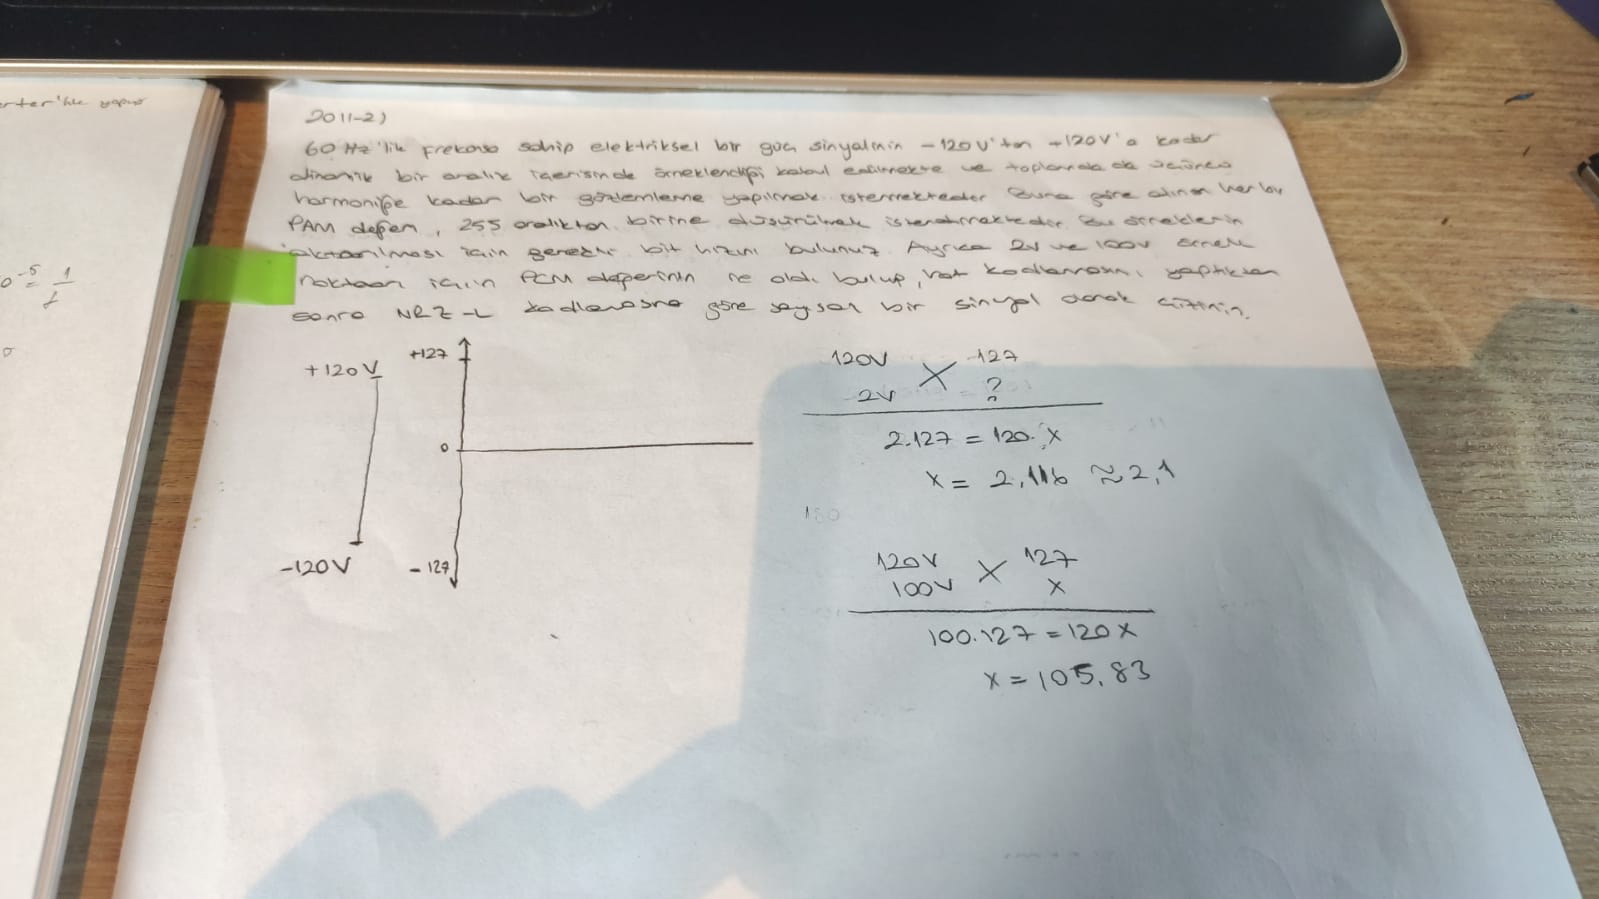 yapısı
2011-2)
60 Hz'lik frekansa sahip elektriksel bir güç sinyalinin -120V'tan +120V'a kadar
dinamik bir aralık içerisinde örneklendiği kabul edilmekte ve toplamda da üçüncü
harmoniğe kadar bir gözlemleme yapılmak istenmektedir. Buna göre alınan her bir
PAM değeri, 255 aralıktan birine düşürülmek istenilmektedir. Bu örneklerin
aktarılması için gerekli bit hızını bulunuz. Ayrıca 2V ve 100V örnek
noktaları için PCM değerinin ne olduğu bulup, hat kodlamasını yaptıktan
sonra NRZ-L kodlamasına göre sayısal bir sinyal olarak çiziniz.
+120V
-120V
+127
0
-127
120V 127
2V ?
2.127 = 120.x
x = 2,116 ≈ 2,1
120V 127
100V x
100.127 = 120x
x = 105,83